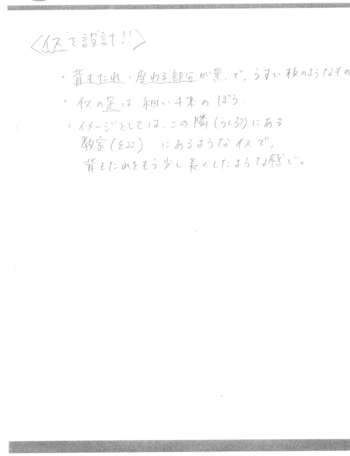 〈イスを設計!!〉
・背もたれ・座れる部分が黒で、うすい板のようなもの
・イスの足は細い4本のぼう。
・イメージとしては、この隣(うしろ)にある
教室(       にあるようなイスで、
背もたれをもう少し長くしたような感じ。